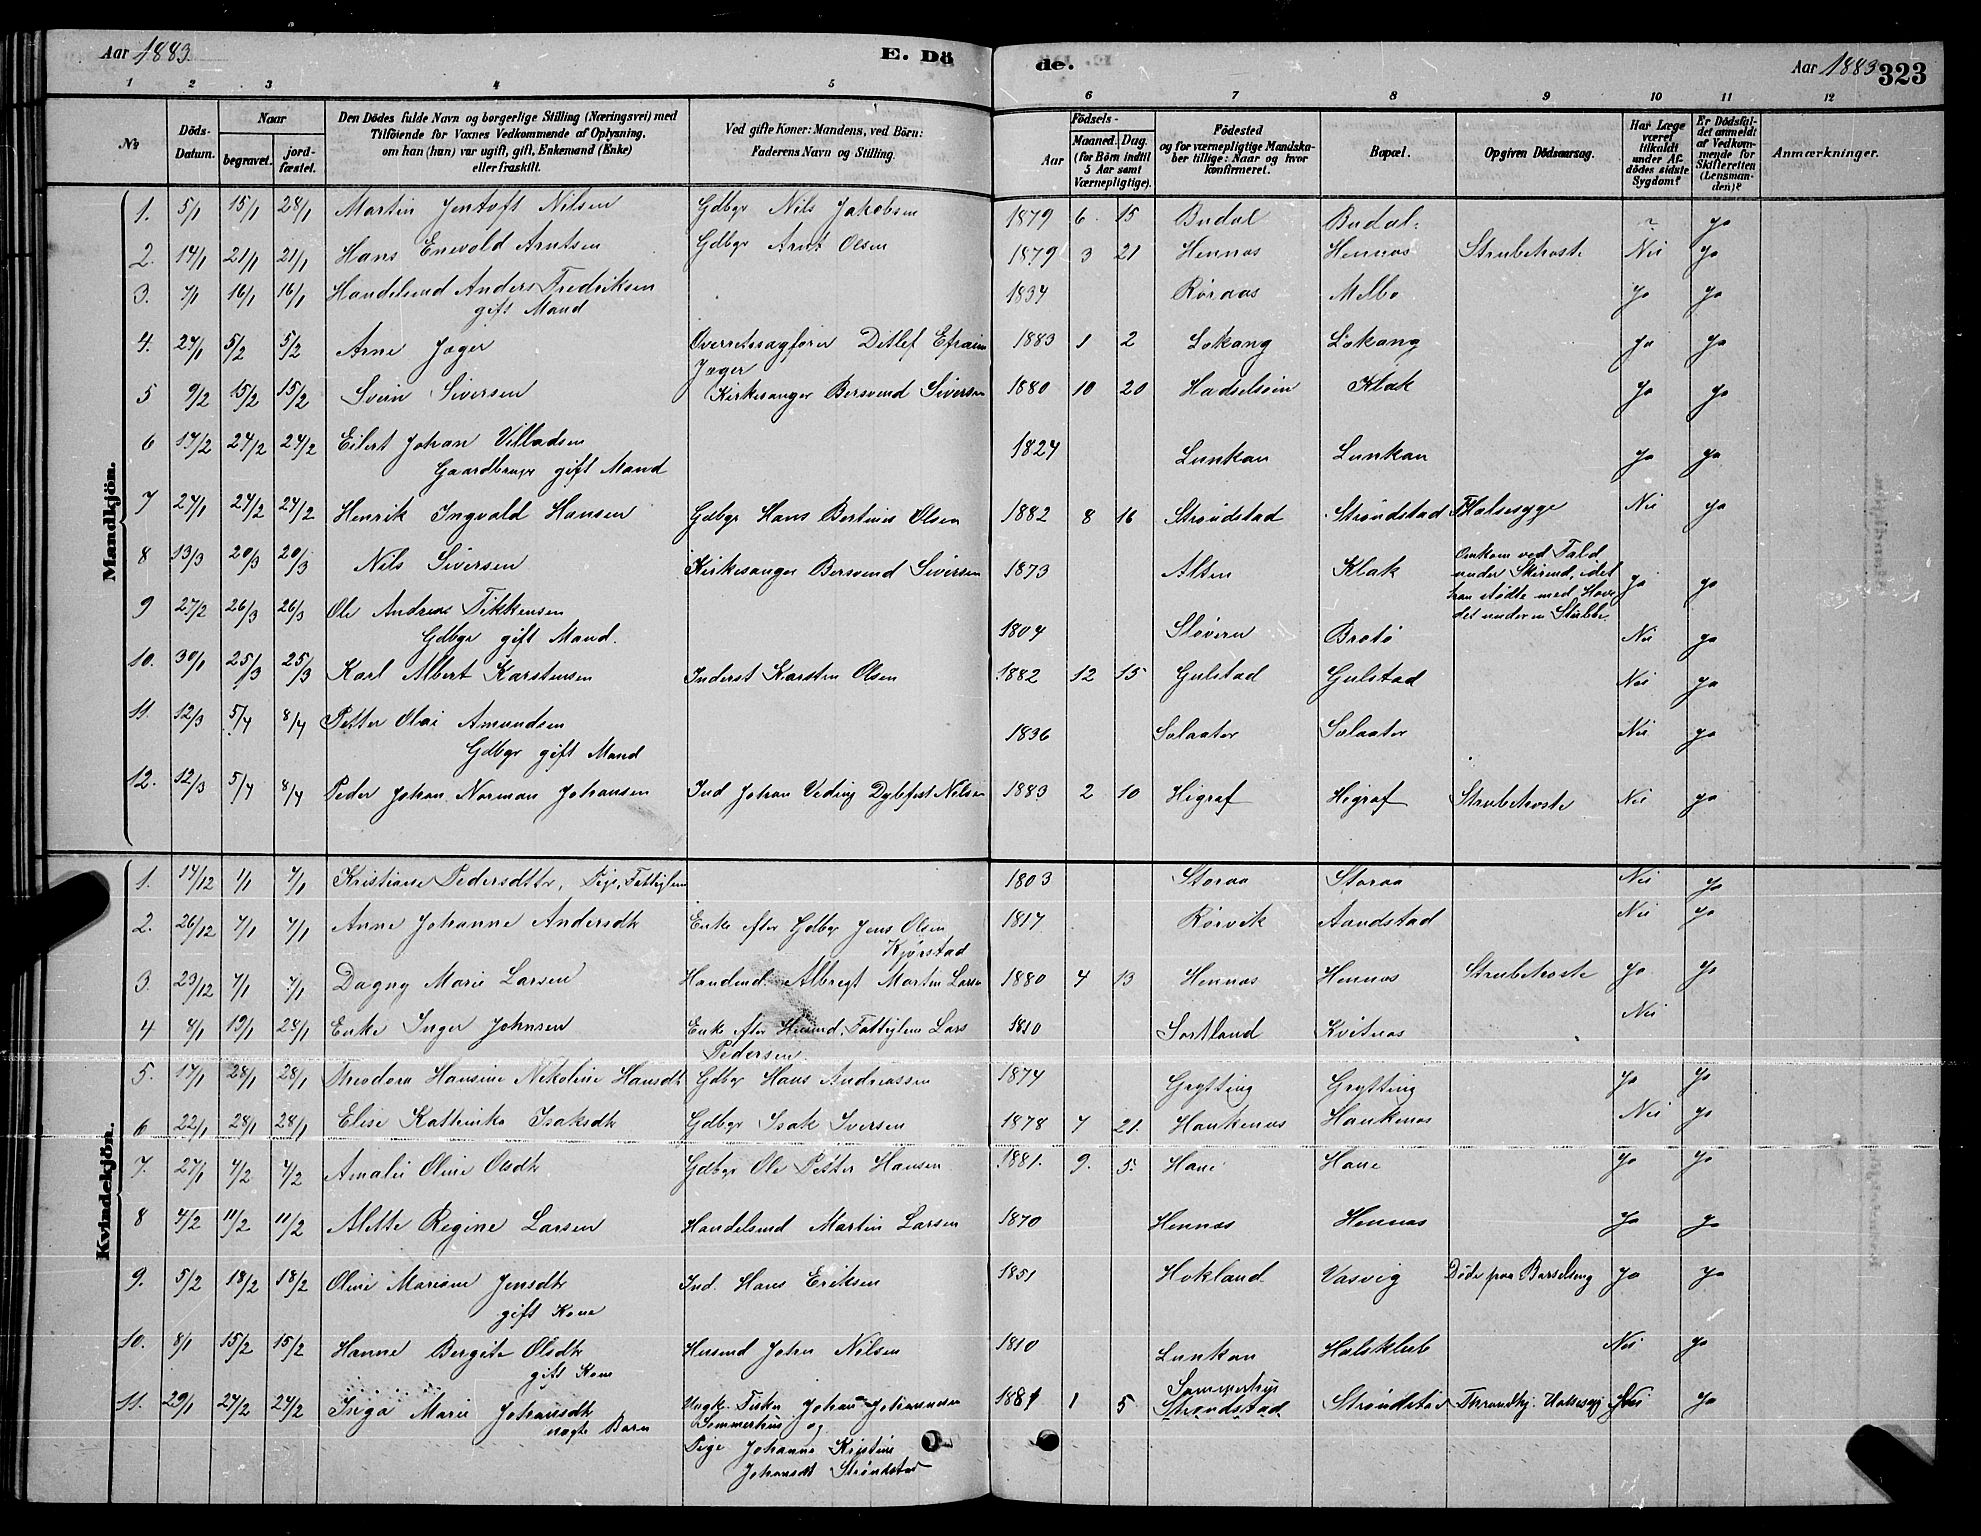 Aar 1883
E. Dö
de.
Aar 1883
323
1 2 3 4 5 6 7 8 9 10 11 12
No
Döds-Datum.
Naar
begravet. jord-fæstet.
Den Dödes fulde Navn og borgerlige Stilling (Næringsvei) med
Tilföiende for Voxnes Vedkommende af Oplysning,
om han (hun) var ugift, gift, Enkemand (Enke)
eller fraskilt.
Ved gifte Koner: Mandens, ved Börn:
Faderens Navn og Stilling.
Födsels-
Aar Maaned. Dag.
(for Börn indtil
5 Aar samt
Værnepligtige).
Födested
og for værnepligtige Mandska-
ber tillige: Naar og hvor
konfirmeret.
Bopæl.
Opgiven Dödsaarsag.
Har Læge
været
tilkaldt
under Af-
dödes sidste
Sygdom?
Er Dödsfal-
det anmeldt
af Vedkom-
mende for
Skifteretten
(Lensman-
den)?
Anmærkninger.
Mandkjön.
1. 5/1 15/1 28/1 Martin Jentoft Nilsen Gdbgr Nils Jakobsen 1879 6 15 Budal Budal ja
2. 14/1 21/1 21/1 Hans Enevold Arntsen Gdbgr Arnt Olsen 1879 3 21 Hennes Hennes Strubehoste Nei ja
3. 7/1 16/1 16/1 Handelsmd Anders Fredriksen 1834 Röraas Melbo ja ja
gift Mand
4. 27/1 5/2 5/2 Arne Jæger Overretssagfører Ditlef Efraim 1883 1 2 Lekang Lekang ja ja
Jæger
5 9/2 15/2 15/2 Svein Siversen Kirkesanger Bersvend Siversen 1880 10 20 Hadseløen Klak ja ja
6 17/2 24/2 24/2 Eilert Johan Villadsen 1824 Lunkan Lunkan ja ja
Gaardbruger gift Mand
7 27/1 24/2 24/2 Henrik Ingvald Hansen Gdbgr Hans Bertines Olsen 1882 8 16 Strøndstad Strøndstad Halsesyge Nei ja
8 13/3 20/3 20/3 Nils Siversen Kirkesanger Bersvend Siversen 1873 Alten Klak Omkom ved Fald ja ja
under Skirend, idet
han stødte med Hove-
det under en Stubbe
9 27/2 26/3 26/3 Ole Andreas Tikkensen 1804 Støvern Brotø Nei ja
Gdbgr gift Mand.
10. 30/1 25/3 25/3 Karl Albert Karstensen Inderst Karsten Olsen 1882 12 15 Gulstad Gulstad Nei ja
11. 12/3 5/4 8/4 Petter Olai Amundsen 1836 Selaater Selaater Nei ja
Gdbgr gift Mand
12. 12/3 5/4 8/4 Peder Johan Norman Johansen Ind Johan Veding Dybfest Nilsen 1883 2 10 Higraf Higraf Strubehoste Nei ja
Kvindekjön.
1. 14/12 1/1 7/1 Kristiane Pedersdttr, Pige, Fattiglem 1803 Storaa Storaa Nei ja
2. 26/12 7/1 7/1 Anne Johanne Andersdtr Enke efter Gdbgr Jens Olsen 1817 Rørvik Aandstad Nei ja
Kjørstad
3. 23/12 7/1 7/1 Dagny Marie Larsen Handmd. Albregt Martin Larsen 1880 4 13 Hennes Hennes Strubehoste ja ja
4 8/1 19/1 28/1 Enke Inger Johnsen Enke efter Husmd, Fattiglem Lars 1810 Sortland Kvitnes Nei
Pedersen
5. 17/1 28/1 28/1 Theodora Hansine Nikoline Hansdtr Gdbgr Hans Andreassen 1874 Grytting Grytting ja ja
6 22/1 28/1 28/1 Elise Kathinka Isaksdtr Gdbgr Isak Iversen 1878 7 21. Haukenes Haukenes Nei ja
7. 27/1 4/2 4/2 Amalie Oline Olsdtr Gdbgr Ole Petter Hansen 1881. 9. 5. Hane Hane ja ja
8 4/2 11/2 11/2 Alette Regine Larsen Handelsmd Martin Larsen 1870 Hennes Hennes ja ja
9. 5/2 18/2 18/2 Oline Mariane Jensdtr Ind. Hans Eriksen 1851 Hokland Vasvig Døde paa Barselseng ja ja
gift Kone
10. 8/1 15/2 15/2 Hanne Bergite Olsdtr Husmd John Nilsen 1810 Lunkan Halskleb Nei ja
gift Kone
11. 29/1 24/2 24/2 Inga Marie Johansdtr Ungk. Fisker Johan Johannesen 1881 1 5 Sommerhus Strøndstad Halsesyg Nei ja
uægte Barn Sommerhus og Strøndstad
Pige Johanna Kristine
Johansdt Strøndstad